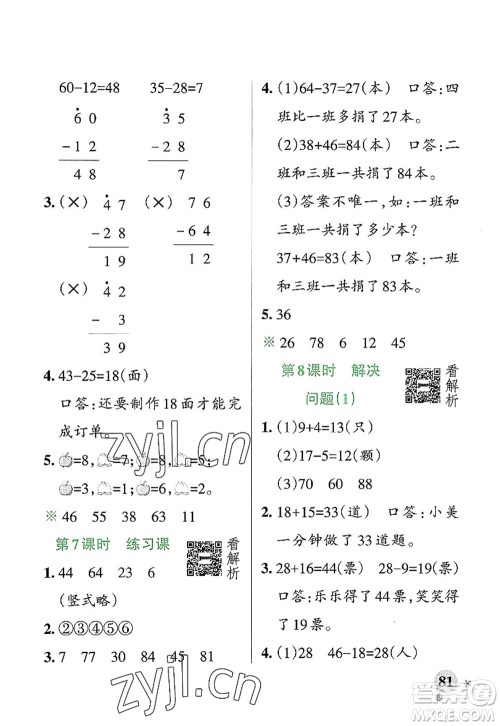 60-12=48  35-28=7
6 0  3 5
- 1 2  - 2 8
4 8  7
3. (×) 4 7  (×) 7 6
- 2 8  - 6 4
1 9  1 2
(×) 4 2
- 3
3 9
4. 43-25=18(面)
口答:还要制作 18 面才能完
成订单.
5. =8, =7; =8, =2;
=3, =1; =6, =2.
※ 46 55 38 63 11
第7课时 练习课
看解析
1. 44 64 23 6
(竖式略)
2. ②③④⑤⑥
3. 7 77 30 45 81
4. (1)64-37=27(本) 口答:四
班比一班多捐了 27本.
(2)38+46=84(本) 口答:二
班和三班一共捐了 84本.
(3)答案不唯一,如:一班和
三班一共捐了多少本?
37+46=83(本) 口答:一班
和三班一共捐了 83本.
5. 36
※ 26 78 6 12 45
第8课时 解决
问题(1)
看解析
1. (1)9+4=13(只)
(2)17-9=8(颗)
(3)70 60
2. 18+15=33(道) 口答:小美
一分钟做了 33道题.
3. 28+16=44(票) 28-9=19(票)
口答:乐乐得了 44票,笑笑得
了 19票.
4. (1)28 46-18=28(人)
81
zyjl.cn
zyjl.cn
答案圈
MXQE.COM